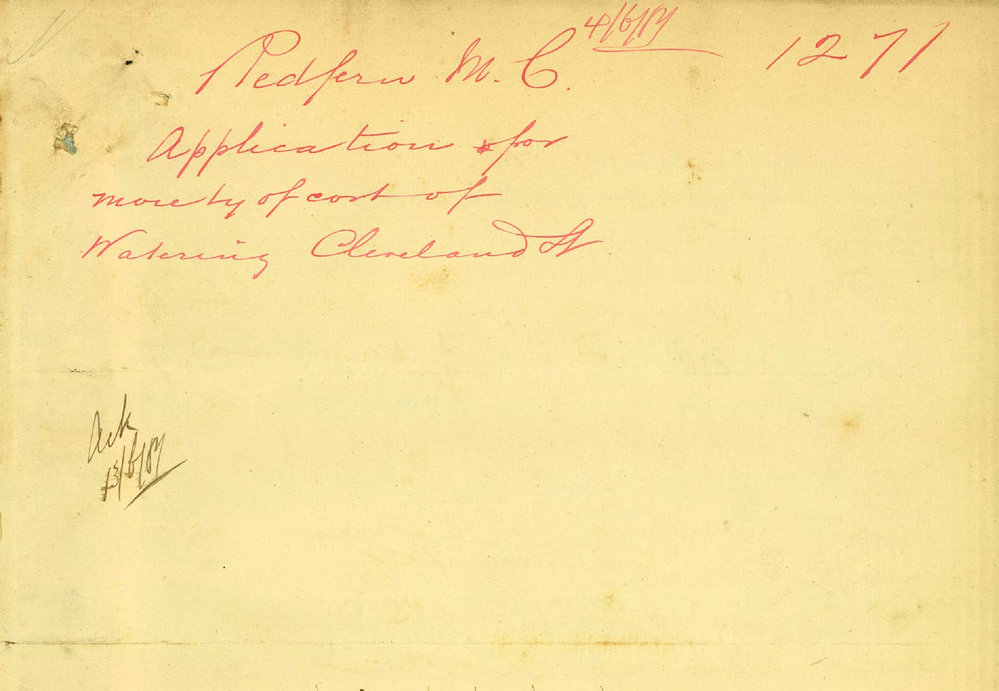 4/6/07
Redfern M. C. 1271
Application for
moiety of cost of
Watering Cleveland St
Ack
13/6/07